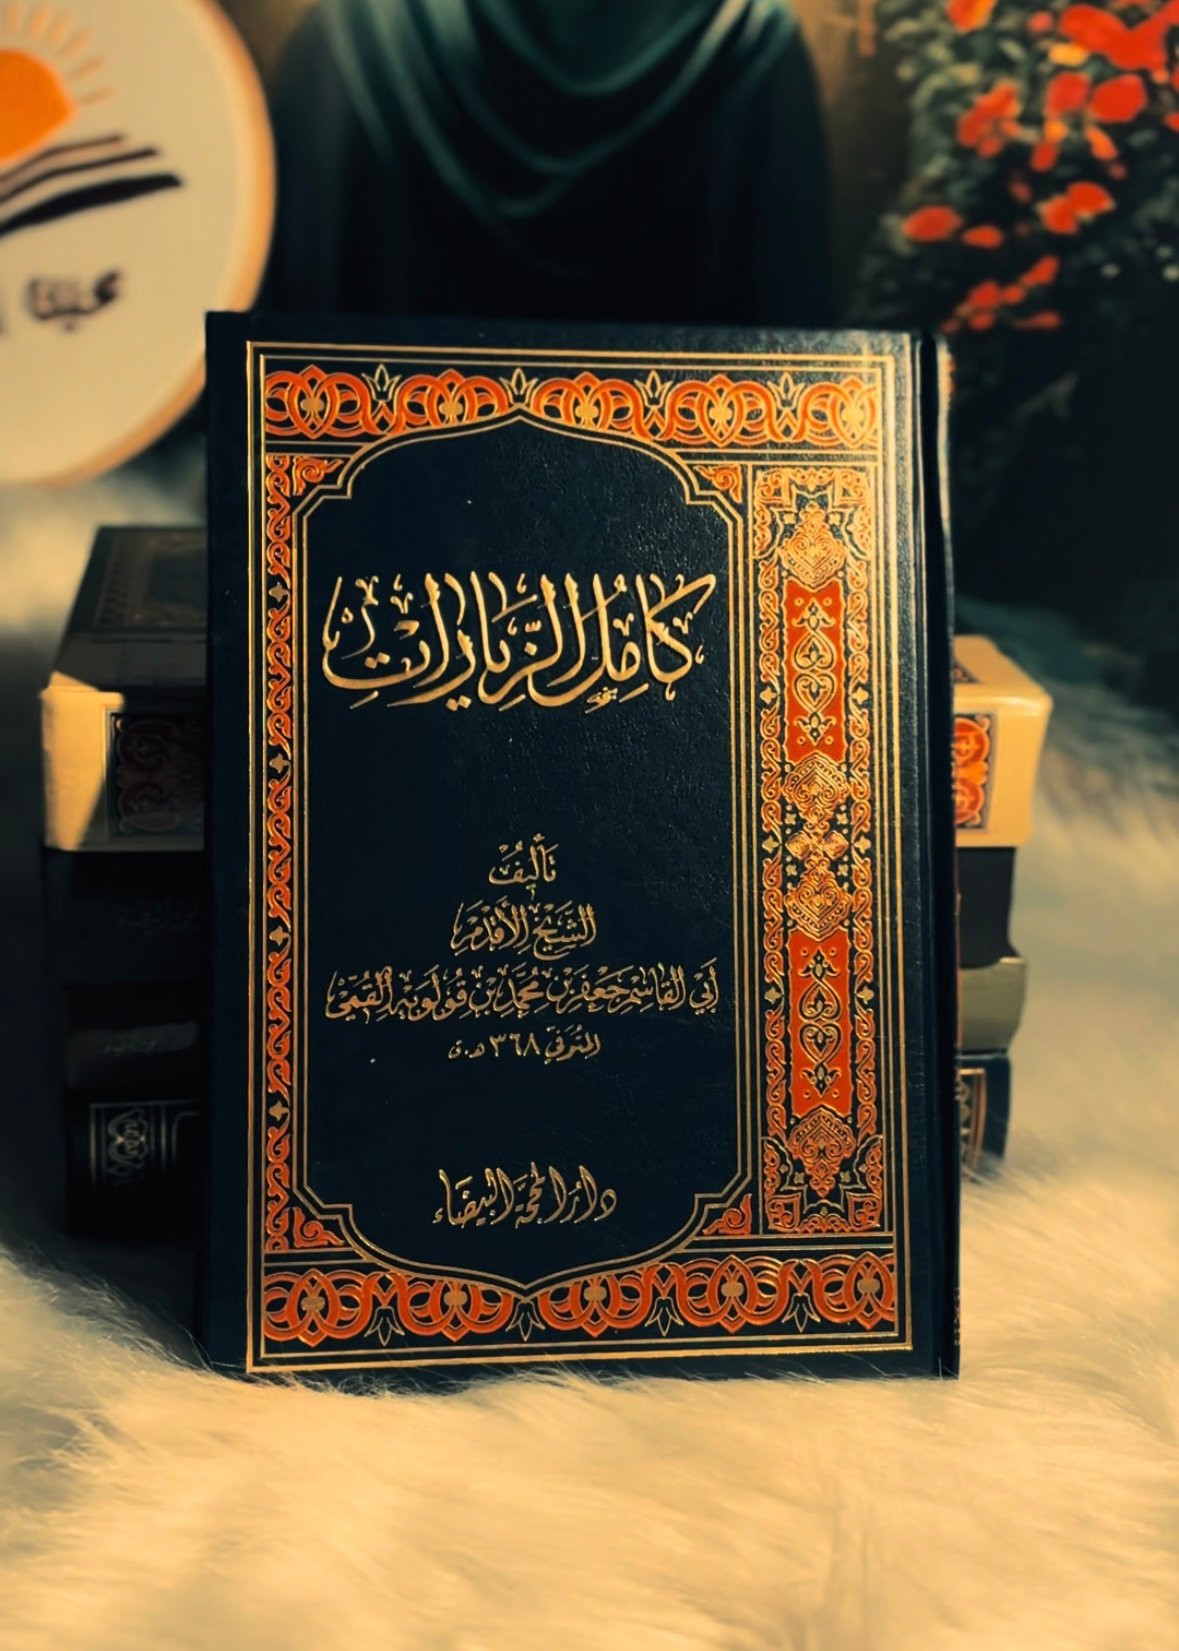 كَامِلُ الزِّيَارَات
تَأْلِيفُ
الشَّيْخِ الأَقْدَمِ
أَبِي القَاسِمِ جَعْفَرِ بْنِ مُحَمَّدِ بْنِ قُولَوَيْهِ القُمِّي
المُتَوَفَّى ٣٦٨ هـ.ق
دار المحجة البيضاء